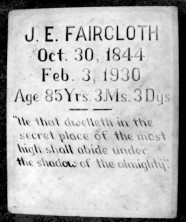 J. E. FAIRCLOTH
Oct. 30, 1844
Feb. 3, 1930
Age 85 Yrs. 3 Ms. 3 Dys
"He that dwelleth in the
secret place of the most
high shall abide under
the shadow of the almighty."